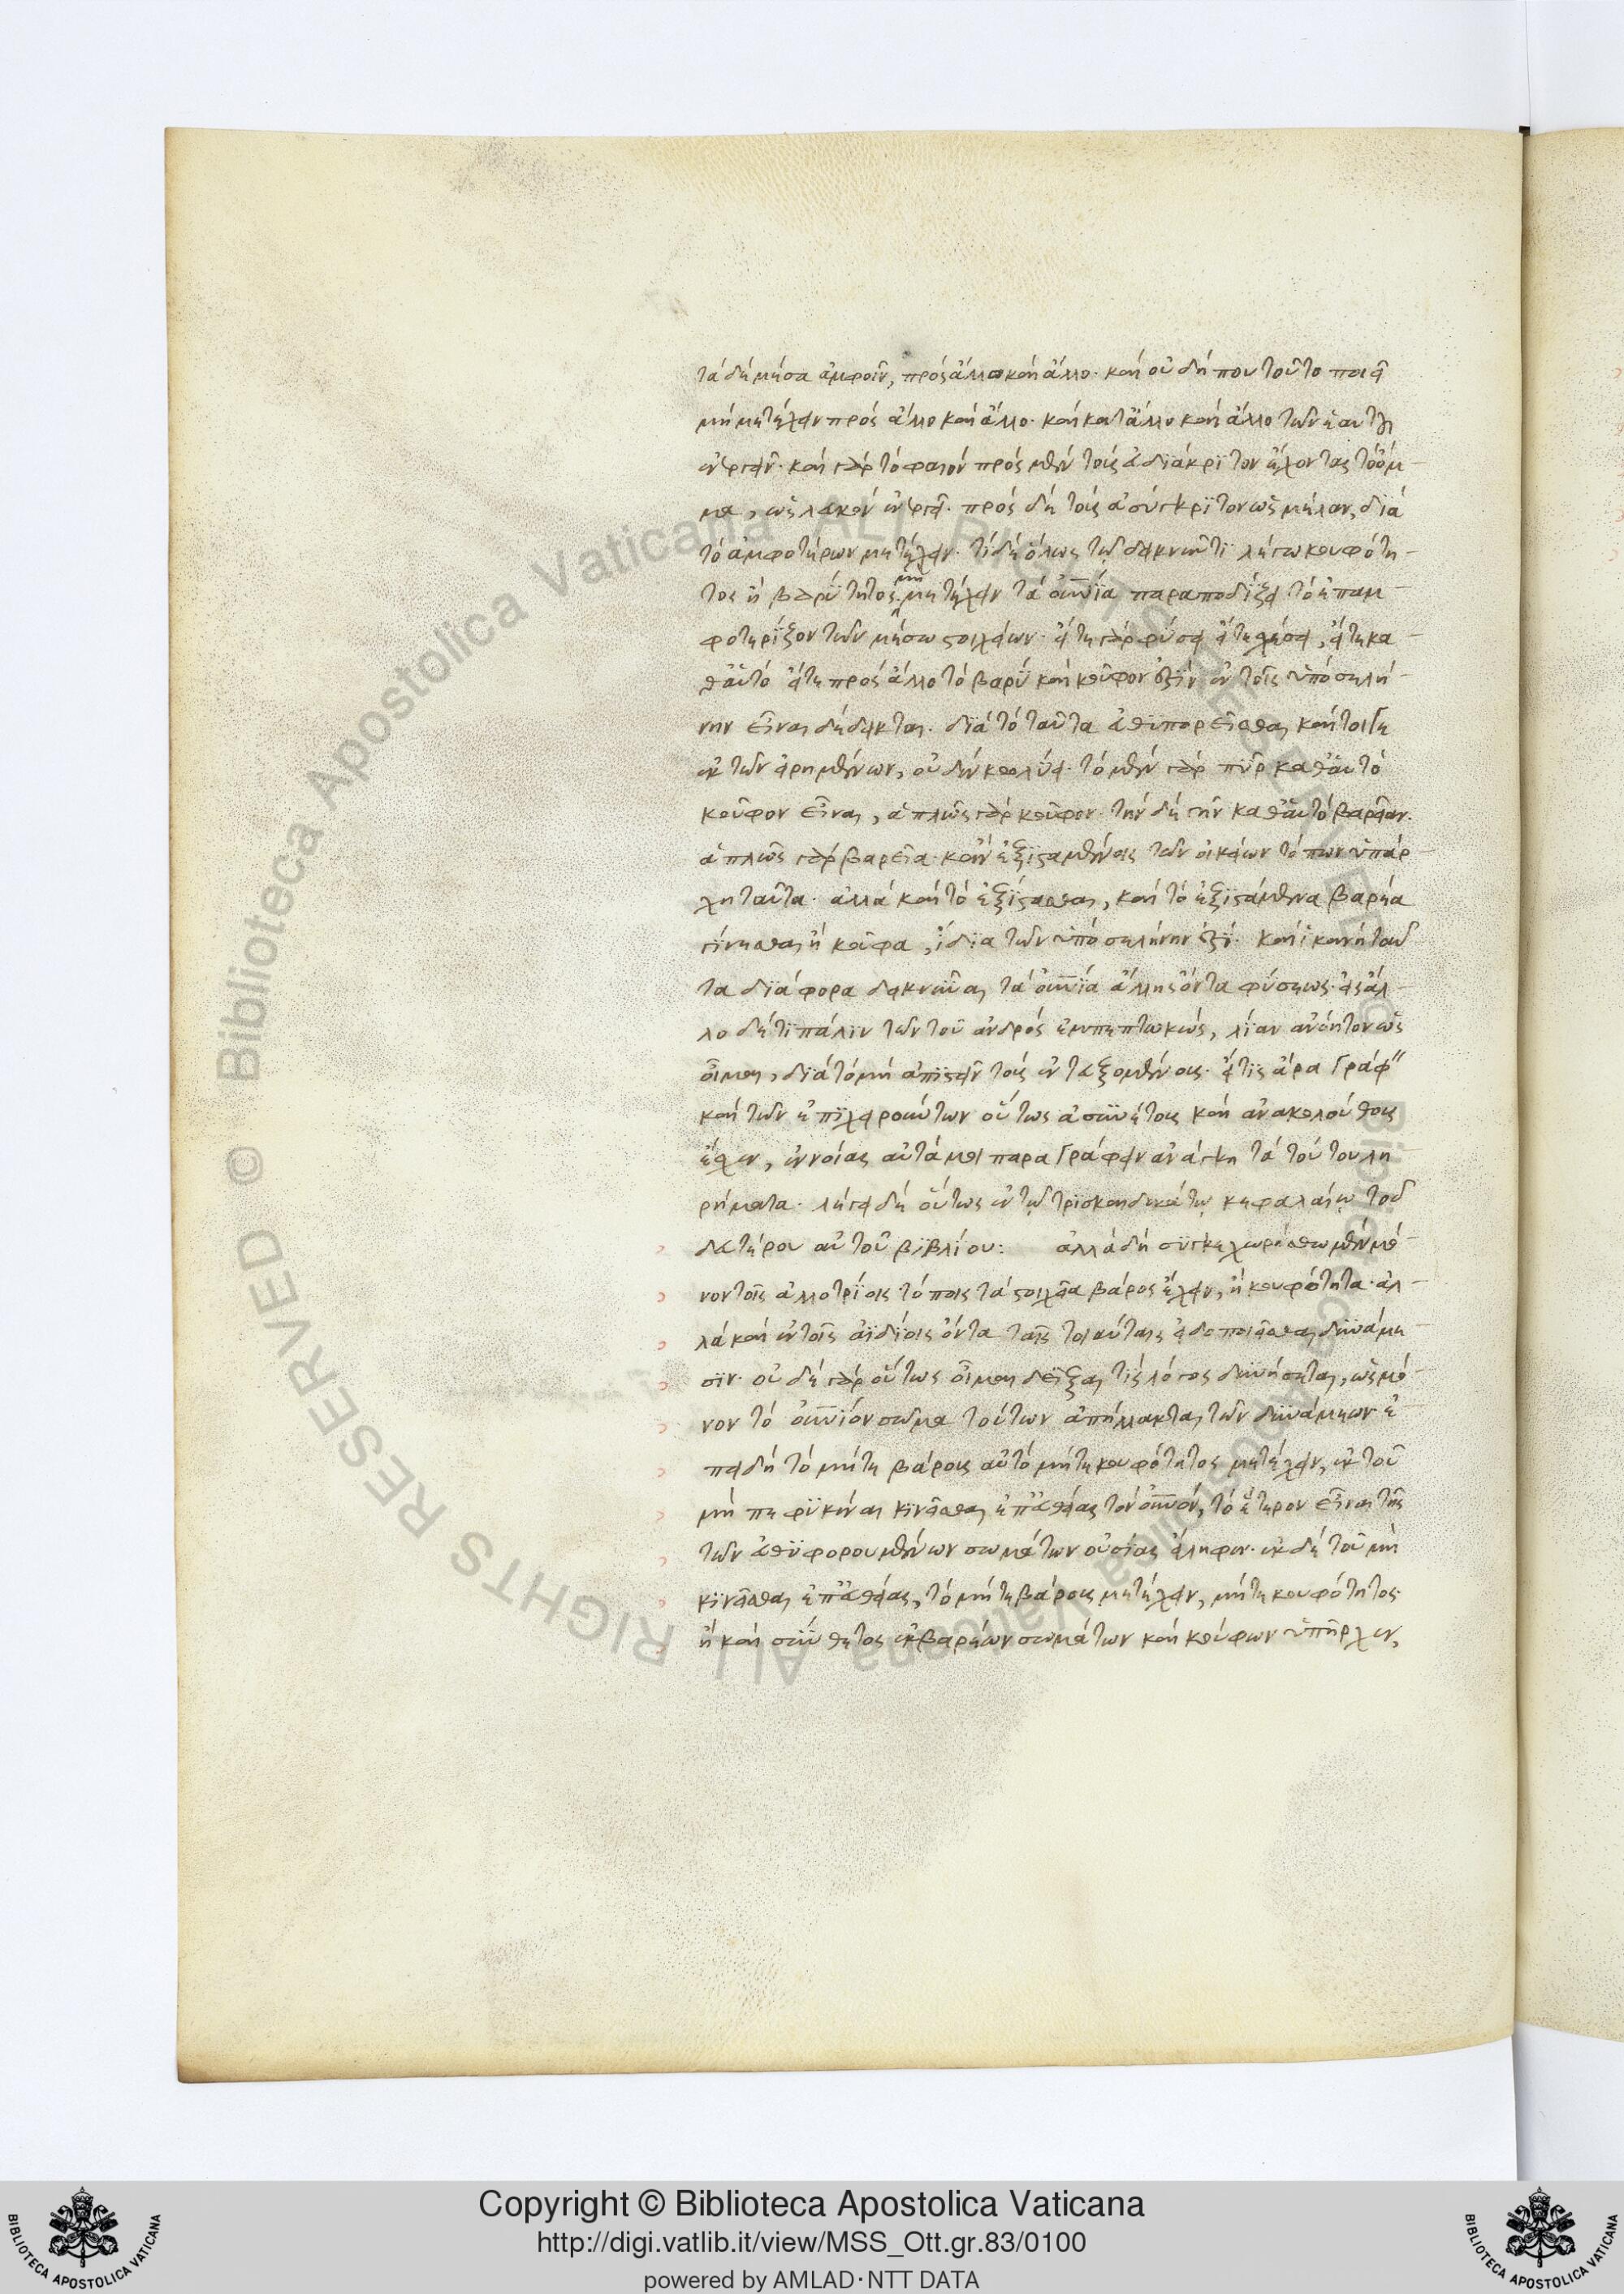 τὰ δὲ μέσα ἀμφοῖν, πρὸς ἄλλο καὶ ἄλλο. καὶ οὐ δή που τοῦτο ποιεῖ
μὴ μετέχειν πρὸς ἄλλο καὶ ἄλλο. καὶ κατ' ἄλλο καὶ ἄλλο τῶν
ἐνεργεῖν. καὶ γὰρ τὸ φαιὸν πρὸς μὲν τοὺς ἀδιάκριτον ἔχοντας τὸ ὄμ-
μα, ὡς λευκὸν ἐνεργεῖ. πρὸς δὲ τοὺς ἀσύγκριτον ὡς μέλαν, διὰ
τὸ ἀμφοτέρων μετέχειν. τί δὲ ὅλως τῷ δεικνύντι λέγω κουφότη-
τος ἢ βαρύτητος μὴ μετέχειν τὰ οὐράνια παραποδίζει τὸ ἐπαμ-
φοτερίζον τῶν μέσων στοιχείων. εἴτε γὰρ φύσει εἴτε θέσει, εἴτε κα-
θ' αὑτὸ εἴτε πρὸς ἄλλο τὸ βαρὺ καὶ κοῦφον ἐστὶν ἐν τοῖς ὑπὸ σελή-
νην εἶναι δέδεικται. διὰ τὸ ταῦτα εὐθυπορεῖσθαι καί τοι γε
ἐκ τῶν εἰρημένων, οὐδὲν κωλύει. τὸ μὲν γὰρ πῦρ καθ' αὑτὸ
κοῦφον εἶναι, ἁπλῶς γὰρ κοῦφον. τὴν δὲ γῆν καθ' αὑτὸ βαρεῖαν.
ἁπλῶς γὰρ βαρεῖα. κἂν ἐξισταμένοις τῶν οἰκείων τόπων ὑπάρ
χῃ ταῦτα. ἀλλὰ καὶ τὸ ἐξίστασθαι, καὶ τὸ ἐξιστάμενα βαρέα
γίνεσθαι ἢ κοῦφα, ἴδια τῶν ὑπὸ σελήνην ἐστί. καὶ ἱκανὴ ταῦ
τα διάφορα δεικνύναι τὰ οὐράνια ἄλλης ὄντα φύσεως. εἰς ἄλ-
λο δέ τι πάλιν τῶν τοῦ ἀνδρὸς ἐμπεπτωκώς, λίαν ἀνόητον ὡς
οἶμαι, διὰ τὸ μὴ ἀπιστεῖν τοὺς ἐντευξομένους. εἴ τις ἄρα γράφειν
καὶ τῶν ἐπιχειρούντων οὕτως ἀσυνέτους καὶ ἀνακολούθους
ἔσχεν, ἐννοίας αὐτά μοι παραγράφειν ἀνάγκη τὰ τούτου λη
ρήματα. λέγει δὲ οὕτως ἐν τῷ τρισκαιδεκάτῳ κεφαλαίῳ τοῦ
δευτέρου αὐτοῦ βιβλίου: ἀλλὰ δὴ συγκεχωρήσθω μὲν μὴ
νον τοῖς ἀλλοτρίοις τόποις τὰ στοιχεῖα βάρος ἔχειν, ἢ κουφότητα. ἀλ-
λὰ καὶ ἐν τοῖς ἀϊδίοις ὄντα ταῖς τοιαύταις εἰδοποιεῖσθαι δυνάμε-
σιν. οὐδὲ γὰρ οὕτως οἶμαι δεῖξαι τὶς λόγος δυνήσεται, ὡς μό-
νον τὸ οὐράνιον σῶμα τούτων ἀπήλλακται τῶν δυνάμεων. ἐ-
πειδὴ τὸ μήτε βάρους αὐτὸ μήτε κουφότητος μετέχειν, ἐκ τοῦ
μὴ πεφυκέναι κινεῖσθαι ἐπ' εὐθείας τὸν οὐρανόν, τὸ ἕτερον εἶναι τῆς
τῶν εὐθυφορουμένων σωμάτων οὐσίας εἴληφεν. ἐκ δὲ τοῦ μὴ
κινεῖσθαι ἐπ' εὐθείας, τὸ μήτε βάρους μετέχειν, μήτε κουφότητος.
ἢ καὶ σύνθετος ἐκ βαρέων σωμάτων καὶ κούφων ὑπῆρχεν,
Copyright © Biblioteca Apostolica Vaticana
http://digi.vatlib.it/view/MSS_Ott.gr.83/0100
powered by AMLAD·NTT DATA
BIBLIOTECA APOSTOLICA VATICANA
BIBLIOTECA APOSTOLICA VATICANA
© Biblioteca Apostolica Vaticana ALL RIGHTS RESERVED
© Biblioteca Apostolica Vaticana ALL RIGHTS RESERVED